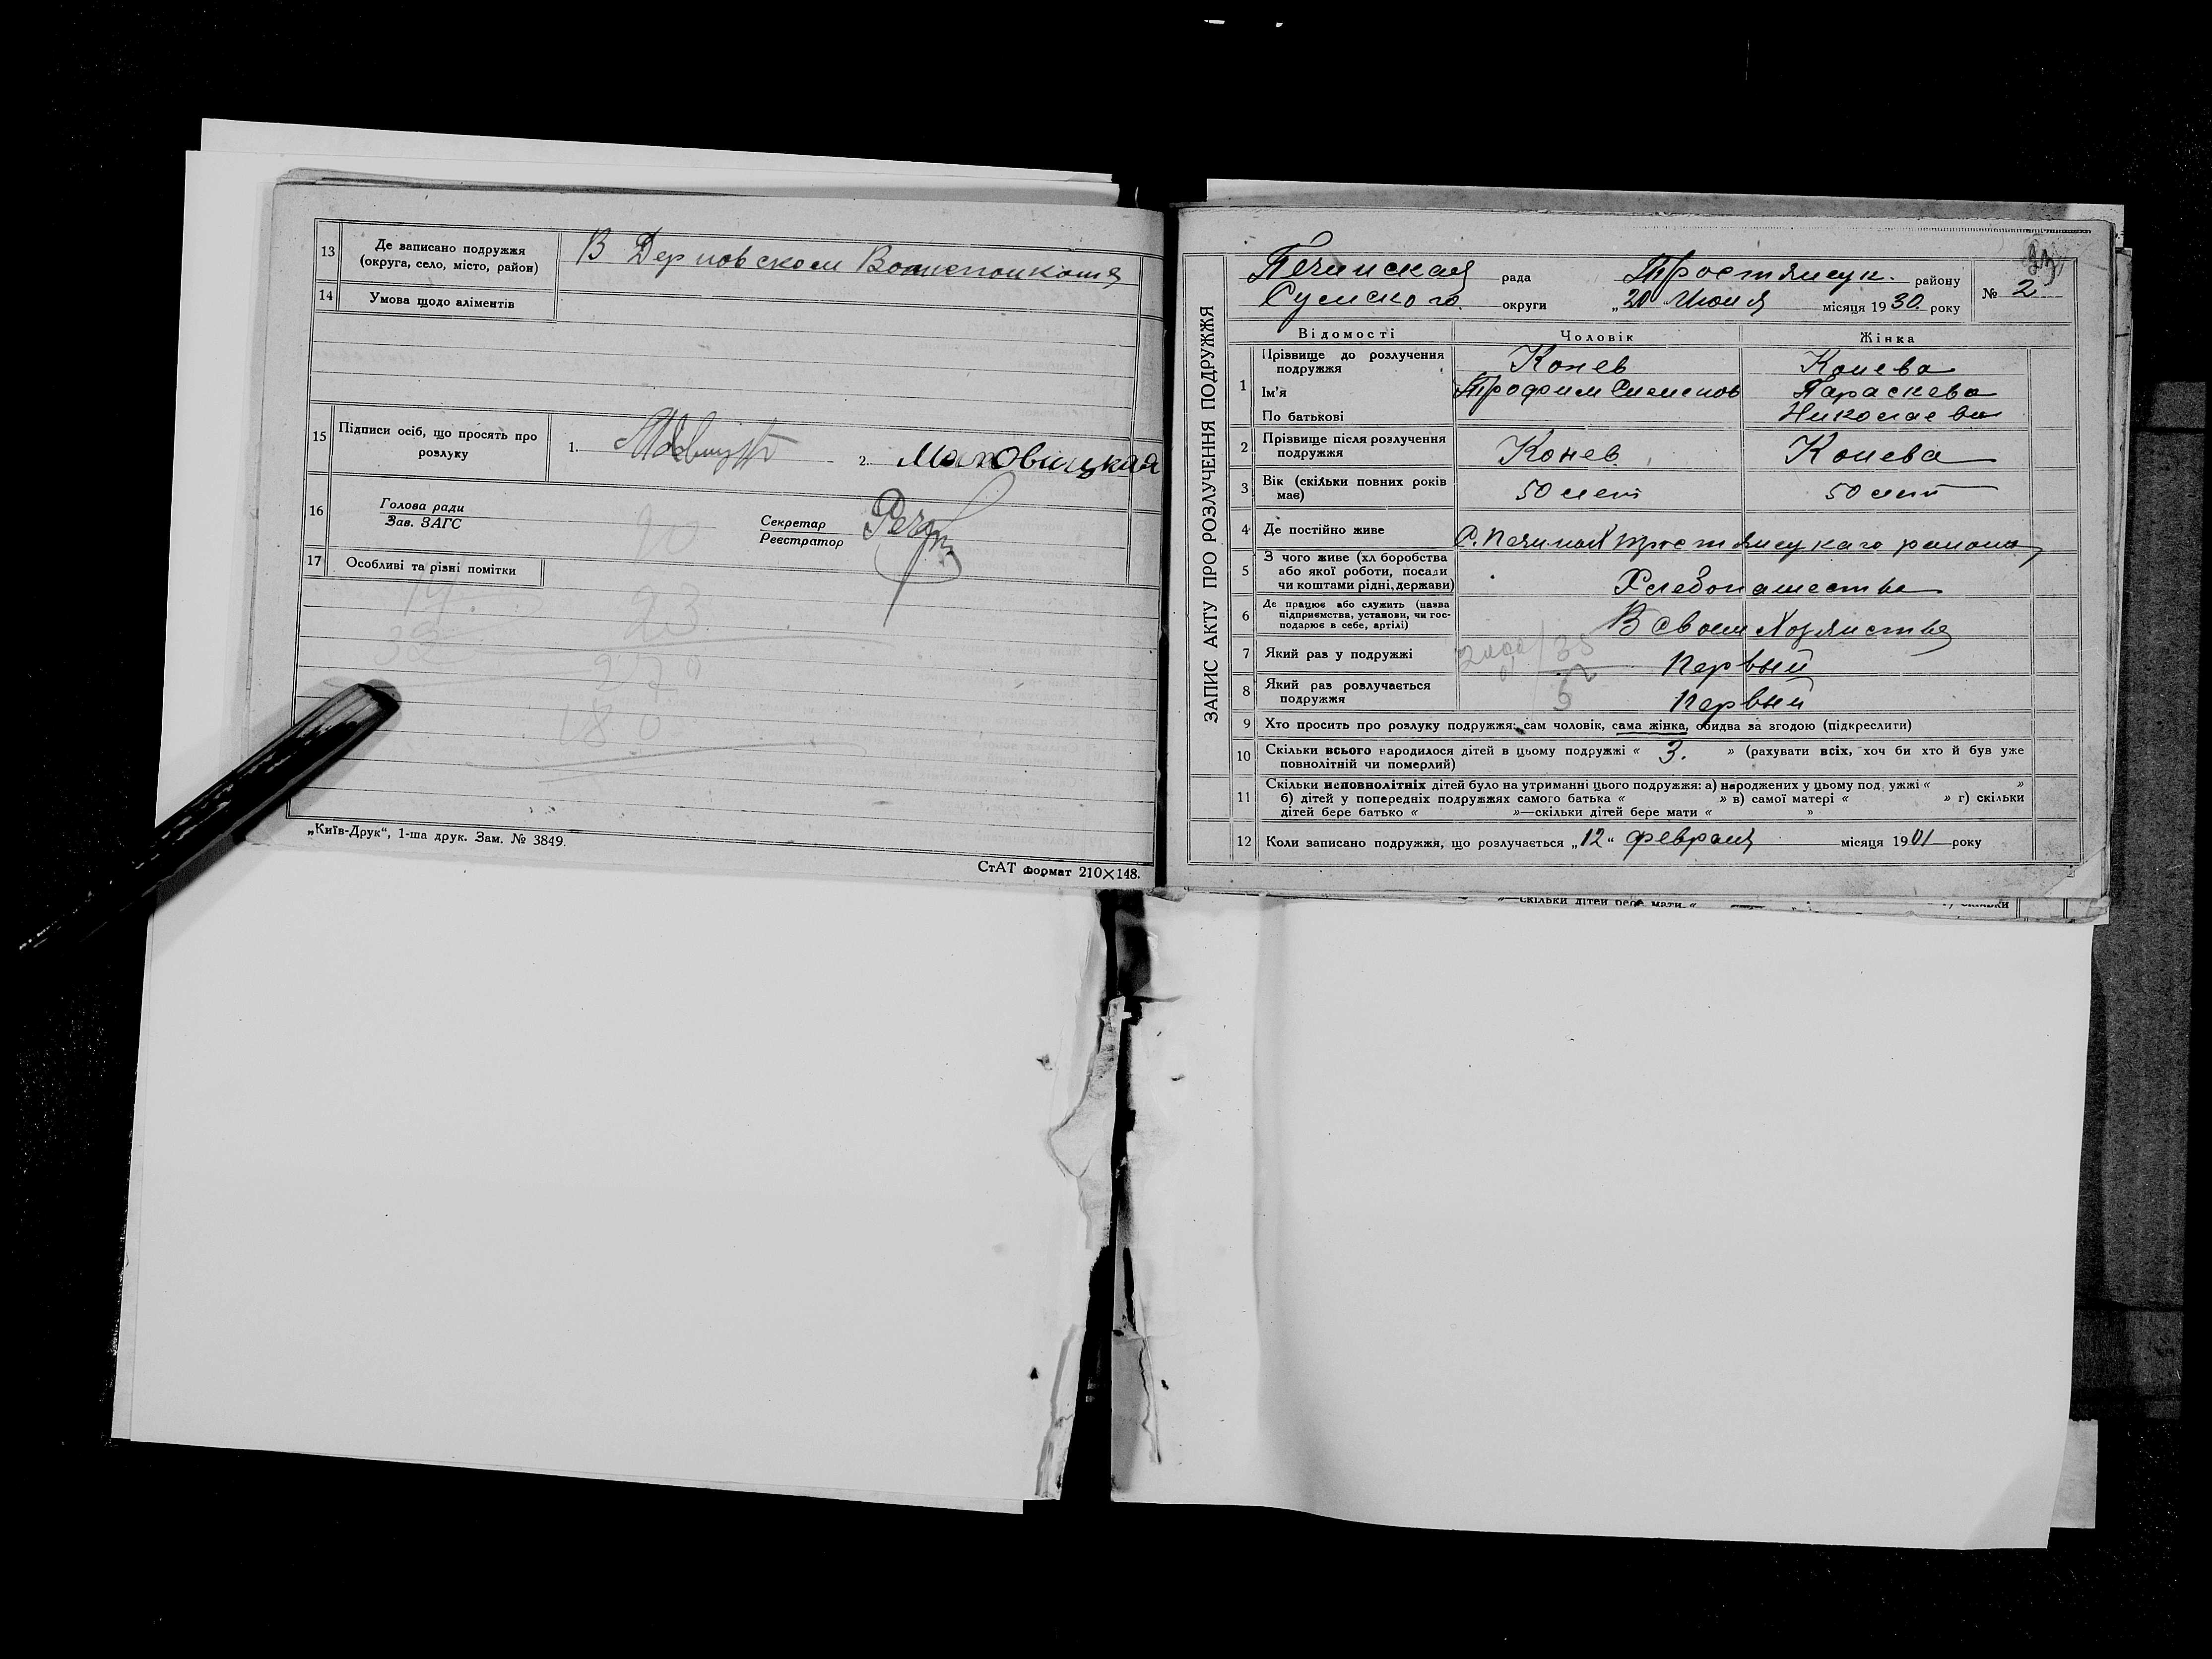 13 Де записано подружжя (округа, село, місто, район) В Дерновском
14 Умова щодо аліментів
15 Підписи осіб, що просять про розлуку 1. 2. Маховицкая
16 Голова ради Зав. ЗАГС 90 Секретар Реєстратор
17 Особливі та різні помітки
14. 93
32
270
180
„Київ-Друк“, 1-ша друк. Зам. № 3849.
СтАТ формат 210×148.
ЗАПИС АКТУ ПРО РОЗЛУЧЕННЯ ПОДРУЖЖЯ
Печинская рада Тростянецк. району № 2
Сумского округи „20 Июня місяця 1930 року
Відомості Чоловік Жінка
1 Прізвище до розлучення подружжя Конев Конева
Ім'я Трофим Семенов Параскева
По батькові Николаевна
2 Прізвище після розлучення подружжя Конев Конева
3 Вік (скільки повних років має) 50 лет 50 лет
4 Де постійно живе С. Печиная Тростянецкаго района
5 З чого живе (хл боробства або якої роботи, посади чи коштами рідні, держави) Хлебопашества
6 Де працює або служить (назва підприємства, установи, чи господарює в себе, артілі) В своем Хозяистве
7 Який раз у подружжі Первый
8 Який раз розлучається подружжя Первый
9 Хто просить про розлуку подружжя: сам чоловік, сама жінка, обидва за згодою (підкреслити)
10 Скільки всього народилося дітей в цьому подружжі « 3. » (рахувати всіх, хоч би хто й був уже
повнолітній чи померлий)
11 Скільки неповнолітніх дітей було на утриманні цього подружжя: а) народжених у цьому под ужжі « »
б) дітей у попередніх подружжях самого батька « » в) самої матері « » г) скільки
дітей бере батько « »—скільки дітей бере мати « »
12 Коли записано подружжя, що розлучається „12“ февраля місяця 1901 року
»—скільки дітей бере мати «